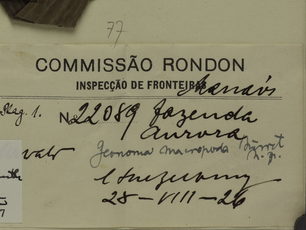 77
COMMISSÃO RONDON
INSPECÇÃO DE FRONTEIRAS
Manáos
Plag. 1. N. 22089 fazenda
Aurora
Geonoma macropoda Burret
n. sp.
28-VIII-26